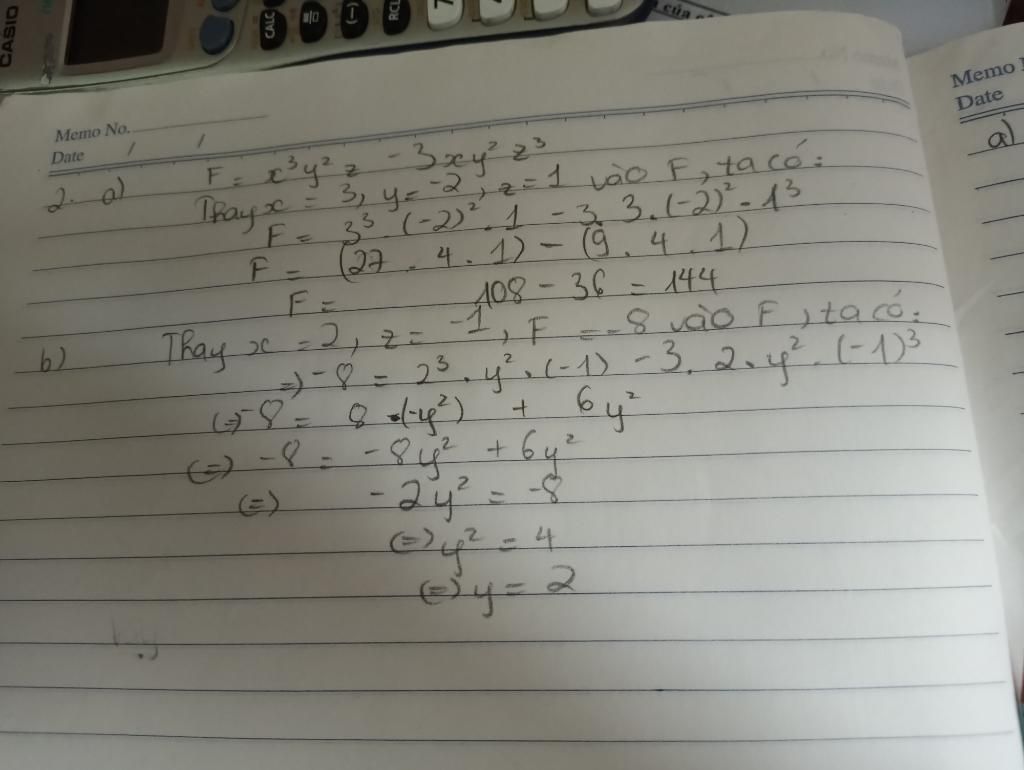 CASIO
CALC
(−)
RCL
7
của
Memo No.
Date / /
2. a) F = x³y²z - 3xy²z³
Thay x = 3, y = -2, z = 1 vào F, ta có:
F = 3³ . (-2)² . 1 - 3. 3. (-2)² - 1³
F = (27 . 4 . 1) - (9 . 4 . 1)
F = 108 - 36 = 144
b) Thay x = 2, z = -1, F = -8 vào F, ta có:
=) -8 = 2³ . y² . (-1) - 3. 2. y² . (-1)³
(=) -8 = 8 . (-y²) + 6y²
(=) -8 = -8y² + 6y²
(=) -2y² = -8
(=) y² = 4
(=) y = 2
Memo
Date
a)